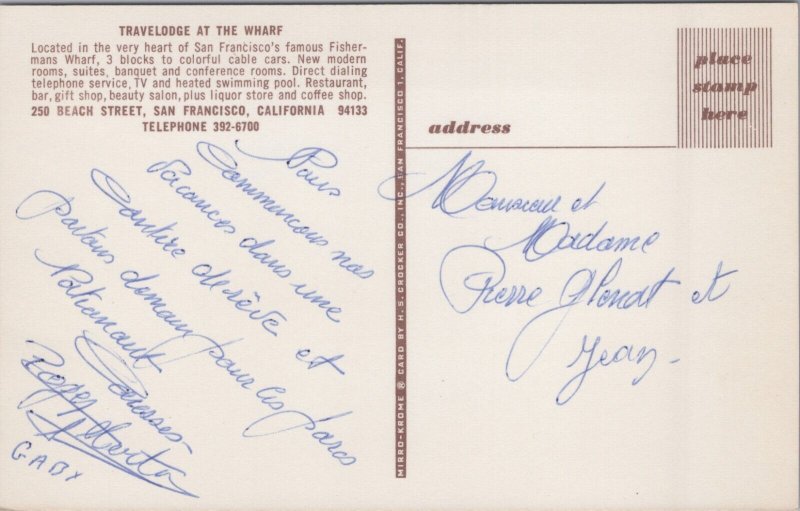 TRAVELODGE AT THE WHARF
Located in the very heart of San Francisco's famous Fisher-
mans Wharf, 3 blocks to colorful cable cars. New modern
rooms, suites, banquet and conference rooms. Direct dialing
telephone service, TV and heated swimming pool. Restaurant,
bar, gift shop, beauty salon, plus liquor store and coffee shop.
250 BEACH STREET, SAN FRANCISCO, CALIFORNIA 94133
TELEPHONE 392-6700
Nous
commençons nos
vacances dans une
contrée de rêve et
partons demain pour les parcs
Nationaux
Roger
GABY
MIRRO-KROME ® CARD BY H. S. CROCKER CO., INC., SAN FRANCISCO 1, CALIF.
place
stamp
here
address
Monsieur et
Madame
Pierre et
Jean